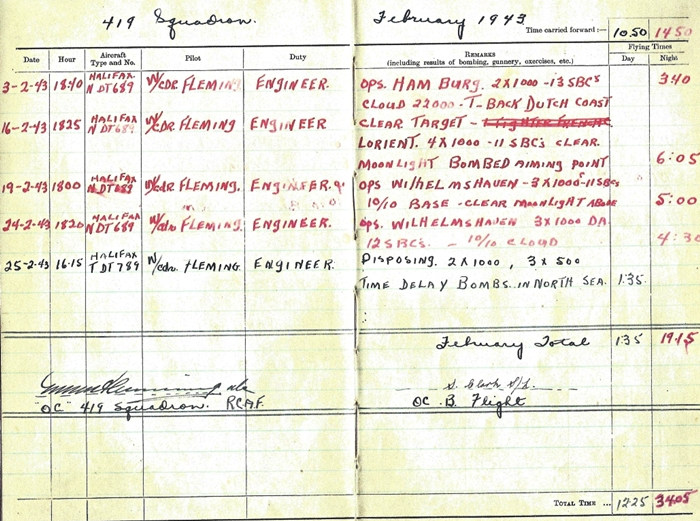 419 Squadron.
February 1943
Time carried forward :— 10.50 14.50
Date Hour Aircraft Type and No. Pilot Duty REMARKS (including results of bombing, gunnery, exercises, etc.) Flying Times Day Night
3-2-43 1840 HALIFAX N DT689 W/CDR FLEMING ENGINEER. OPS. HAMBURG. 2X1000 -13 SBC's 340
CLOUD 22000 - T-BACK DUTCH COAST
16-2-43 1825 HALIFAX N DT689 W/CDR FLEMING ENGINEER CLEAR TARGET -
LORIENT. 4X1000 -11 SBC's CLEAR.
MOONLIGHT BOMBED AIMING POINT 6:05
19-2-43 1800 HALIFAX N DT689 W/CDR FLEMING. ENGINEER. OPS WILHELMSHAVEN - 3X1000 -11SBCs
10/10 BASE - CLEAR MOONLIGHT ABOVE 5:00
24-2-43 1820 HALIFAX N DT689 W/cdr FLEMING. ENGINEER. OPS. WILHELMSHAVEN 3X1000 DA.
12 SBC's. - 10/10 CLOUD 4:30
25-2-43 16.15 HALIFAX T DT789 W/cdr FLEMING. ENGINEER. DISPOSING. 2X1000, 3X500
TIME DELAY BOMBS. IN NORTH SEA. 1:35.
February Total 1:35 19.15
S. Clark S/L.
"OC" 419 Squadron. RCAF. OC. B. Flight
TOTAL TIME ... 12.25 34.05